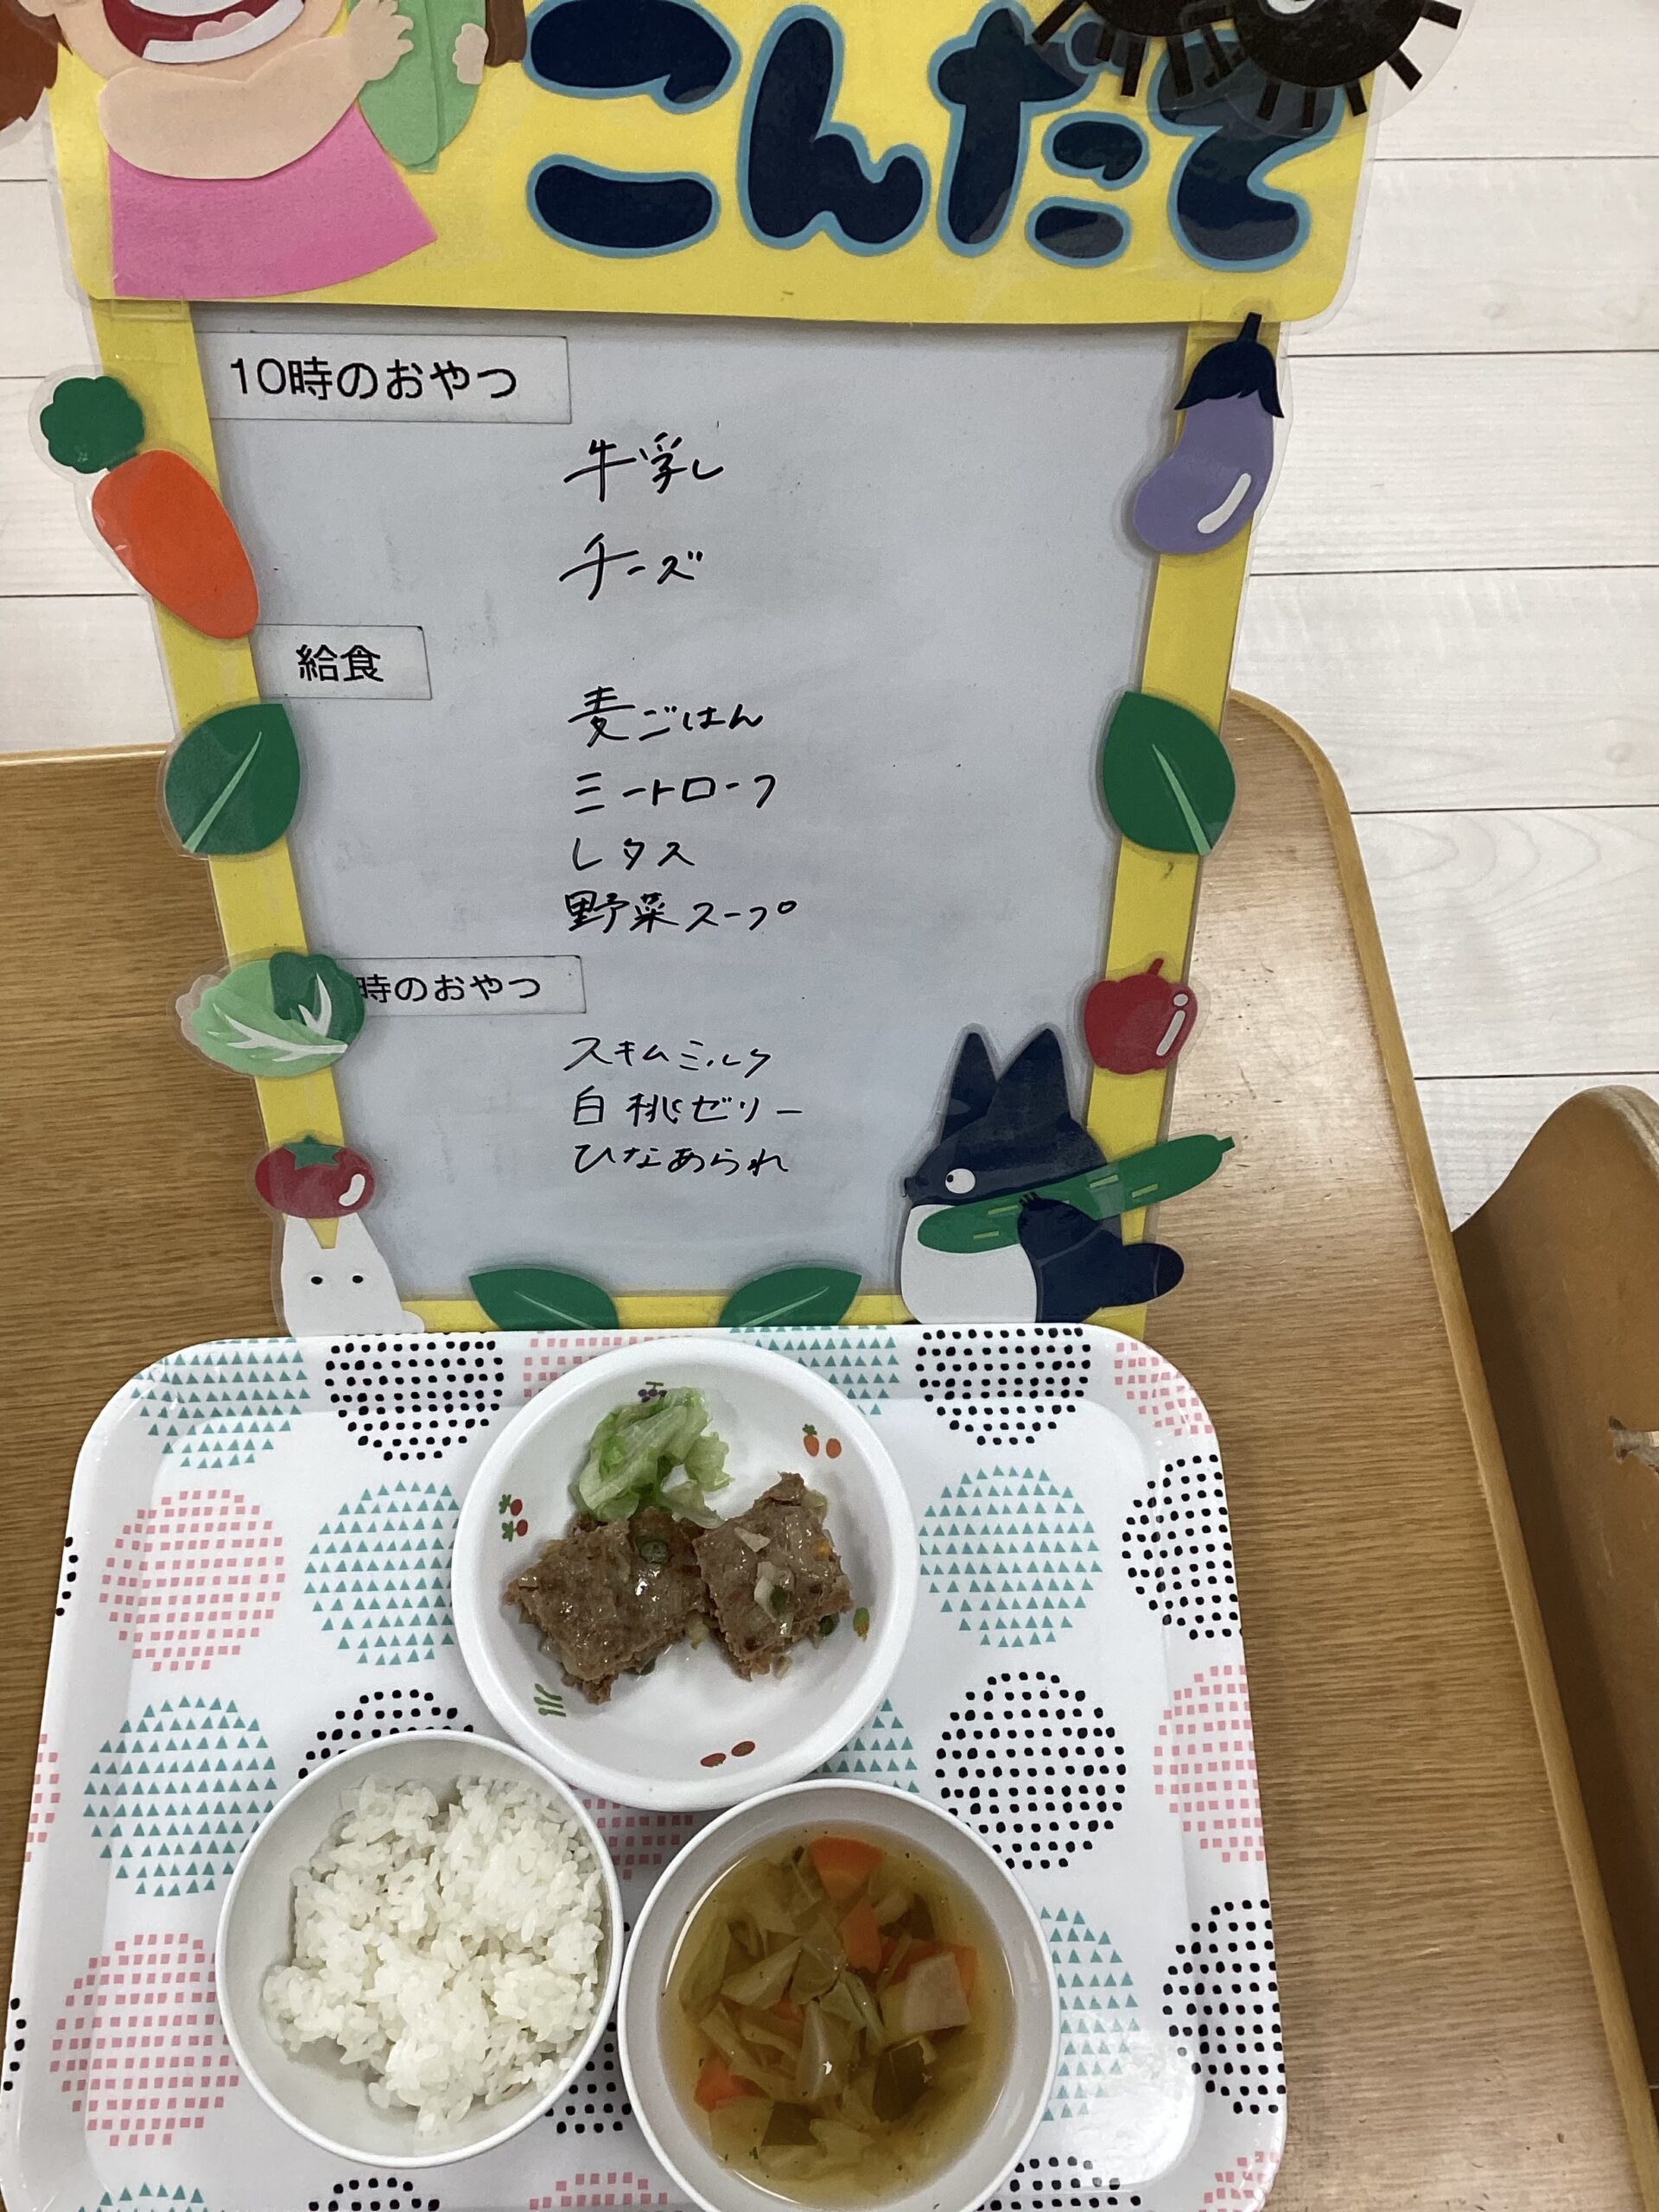 こんだて
10時のおやつ
牛乳
チーズ
給食
麦ごはん
ミートローフ
レタス
野菜スープ
時のおやつ
スキムミルク
白桃ゼリー
ひなあられ